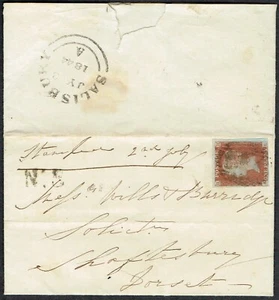 SALISBURY
JY
1844
A
2nd july
No. 3
Messrs Wills & Burridge
Solicitors
Shaftesbury
Dorset